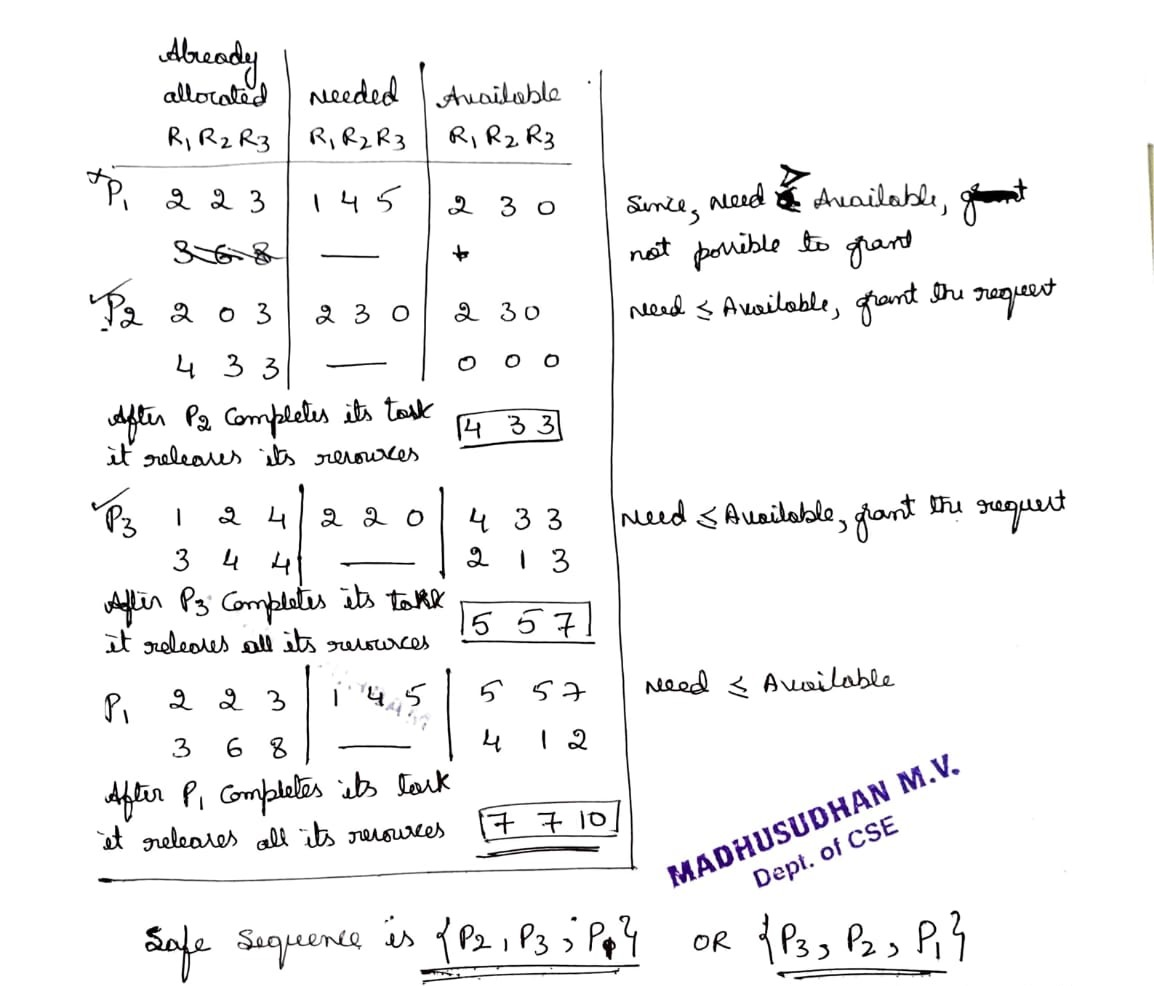 Already
allocated needed Available
R1 R2 R3 R1 R2 R3 R1 R2 R3
P1 2 2 3 1 4 5 2 3 0 Since, need > Available,
3 6 8 — not possible to grant
P2 2 0 3 2 3 0 2 3 0 need ≤ Available, grant the request
4 3 3 — 0 0 0
After P2 Completes its task 4 3 3
it releases its resources
P3 1 2 4 2 2 0 4 3 3 need ≤ Available, grant the request
3 4 4 — 2 1 3
After P3 Completes its task 5 5 7
it releases all its resources
P1 2 2 3 1 4 5 5 5 7 need ≤ Available
3 6 8 — 4 1 2
After P1 Completes its task
it releases all its resources 7 7 10
MADHUSUDHAN M.V.
Dept. of CSE
Safe Sequence is {P2, P3, P1} OR {P3, P2, P1}